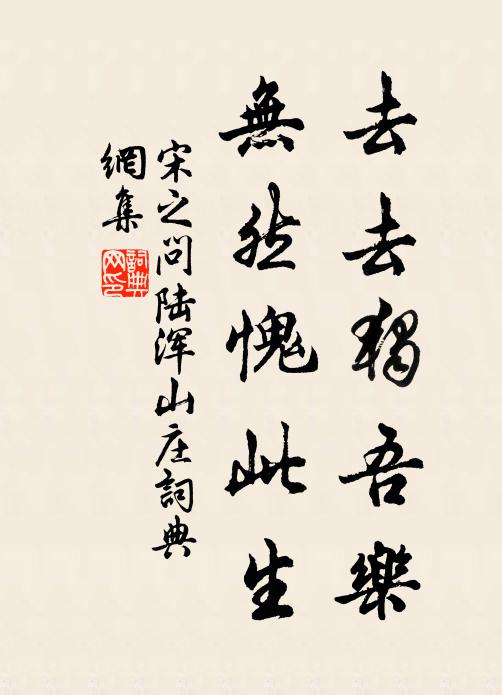 去去獨吾樂
無然愧此生
宋之问陆浑山庄詞典
網集
詞典
网印